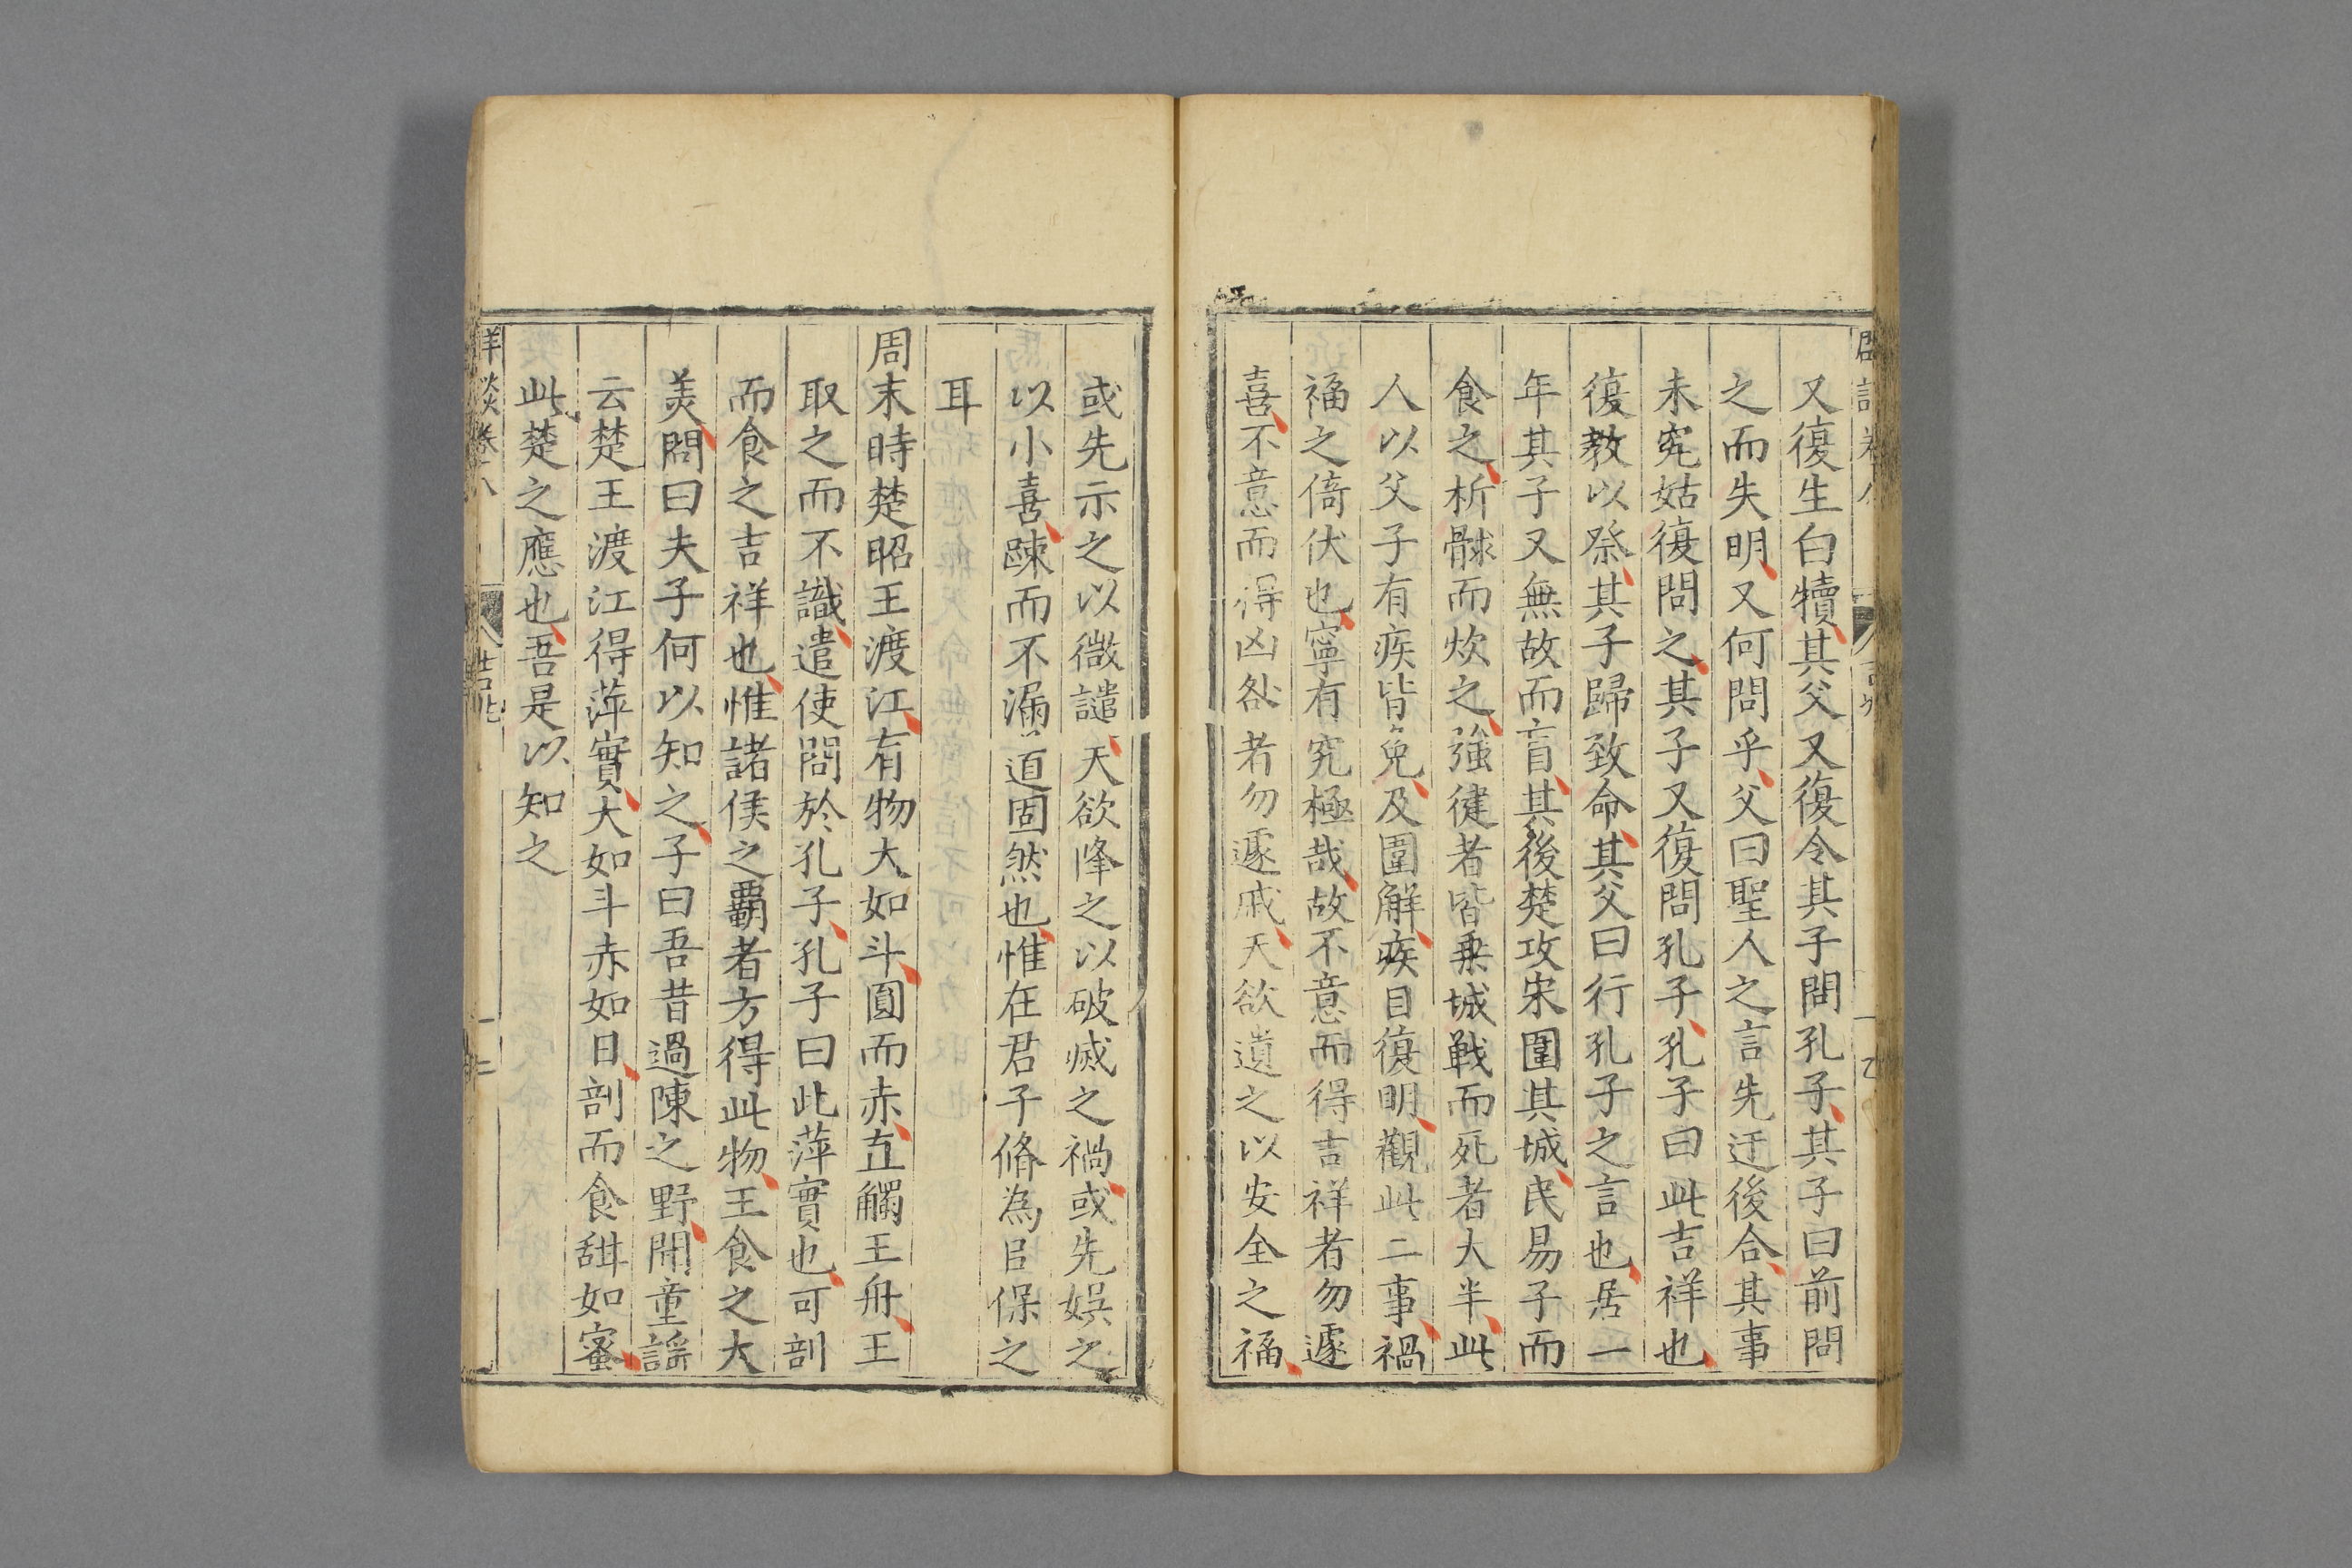 又復生白犢其父又復令其子問孔子其子曰前問
之而失明又何問乎父曰聖人之言先迕後合其事
未究姑復問之其子又復問孔子孔子曰此吉祥也
復教以祭其子歸致命其父曰行孔子之言也居一
年其子又無故而盲其後楚攻宋圍其城民易子而
食之析骸而炊之強徤者皆乗城戰而死者大半此
人以父子有疾皆免及圍解疾目復明觀此二事禍
福之倚伏也寧有究極哉故不意而得吉祥者勿遽
喜不意而得凶咎者勿遽戚天欲遺之以安全之福
或先示之以微譴天欲降之以破滅之禍或先娛之
以小喜踈而不漏道固然也惟在君子脩為㠯保之
耳
周末時楚昭王渡江有物大如斗圓而赤直觸王舟王
取之而不識遣使問於孔子孔子曰此萍實也可剖
而食之吉祥也惟諸侯之覇者方得此物王食之大
美問曰夫子何以知之子曰吾昔過陳之野聞童謠
云楚王渡江得萍實大如斗赤如日剖而食甜如蜜
此楚之應也吾是以知之